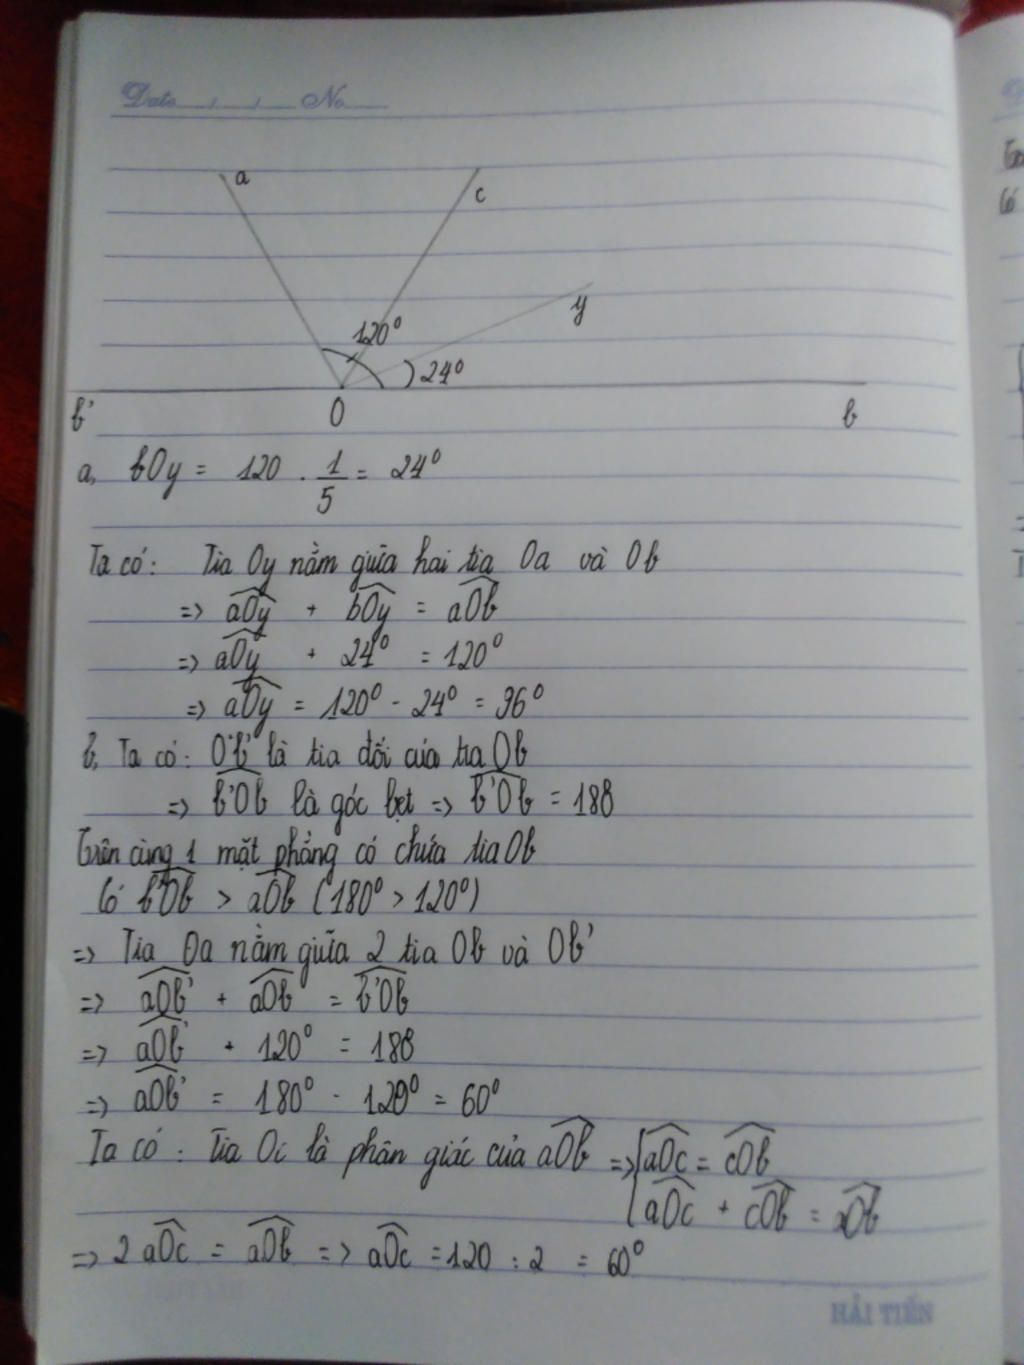 Date / / No
a
c
y
120°
24°
b'
O
b
a, bOy = 120 . 1/5 = 24°
Ta có: Tia Oy nằm giữa hai tia Oa và Ob
=> aOy + bOy = aOb
=> aOy + 24° = 120°
=> aOy = 120° - 24° = 96°
b, Ta có: O'b' là tia đối của tia Ob
=> b'Ob là góc bẹt => b'Ob = 180
Trên cùng 1 mặt phẳng có chứa tia Ob
Có b'Ob > aOb (180° > 120°)
=> Tia Oa nằm giữa 2 tia Ob và Ob'
=> aOb' + aOb = b'Ob
=> aOb' + 120° = 180
=> aOb' = 180° - 120° = 60°
Ta có: Tia Oc là phân giác của aOb => { aOc = cOb
aOc + cOb = aOb
=> 2 aOc = aOb => aOc = 120 : 2 = 60°
HẢI TIẾN
Có